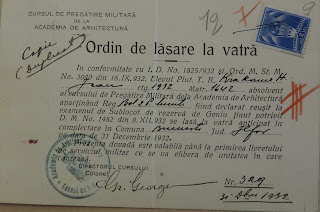 CURSUL DE PREGĂTIRE MILITARĂ
DE LA
ACADEMIA DE ARHITECTURĂ
12
9
Copie
(Duplicat)
Ordin de lăsare la vatră
In conformitate cu I. D. No. 1825/932 și Ord. M. St. M.
No. 3080 din 16.IX.932. Elevul Plut. T. R.
Jean ctg. 1932 Matr. 1642 absolvent
al cursului de Pregătire Militară dela Academia de Arhitectură
aparținând Reg. fiind declarat reușit la
examenul de Sublocot. de rezervă de Geniu prin
D. M. No. 1482 din 8.XII.932 se lasă la vatră anticipat în
complectare în Comuna București Jud. Ilfov
pe data de 31 Decembrie 1932.
Prezenta dovadă este valabilă până la primirea livretului
de serviciul militar ce va elibera de unitatea în care
contează.
DIRECTORUL CURSULUI
Colonel
Gh. George
Nr. 329
31 Dbrie 1932